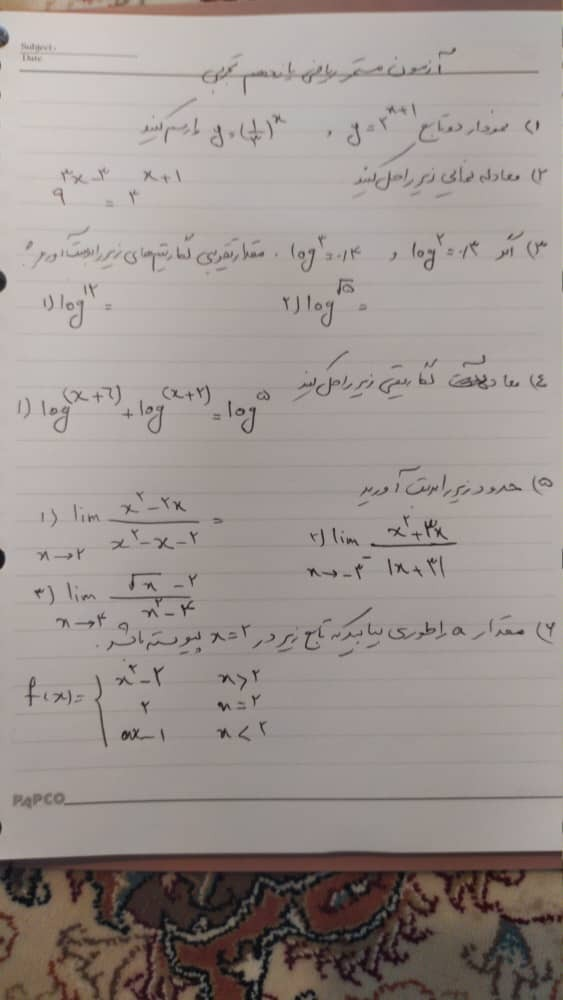 Subject:
Date
آزمون مستمر ریاضی یازدهم تجربی
۱) نمودار دو تابع y = ۲^(x+1) و y = (۱/۳)^x را رسم کنید
۲) معادله نمایی زیر را حل کنید
۹^(۳x-۳) = ۳^(x+1)
۳) اگر log^۲ = ۰/۳ و log^۳ = ۰/۴ . مقدار تقریبی لگاریتم‌های زیر را بدست آورید؟
۱) log^۱۲ = ۲) log^√۵ =
۴) معادله لگاریتمی زیر را حل کنید
۱) log^(x+6) + log^(x+۲) = log^۵
۵) حدود زیر را بدست آورید
۱) lim x→۲ (x^۲-۲x)/(x^۲-x-۲) = ۲) lim x→-۳^- (x^۲+۳x)/|x+۳|
۳) lim x→۴ (√x - ۲)/(x^۲-۴)
۶) مقدار a را طوری بیابید که تابع زیر در x=۲ پیوسته باشد.
f(x) = { x^۲-۲ x>۲
۲ x=۲
ax-1 x<۲
PAPCO